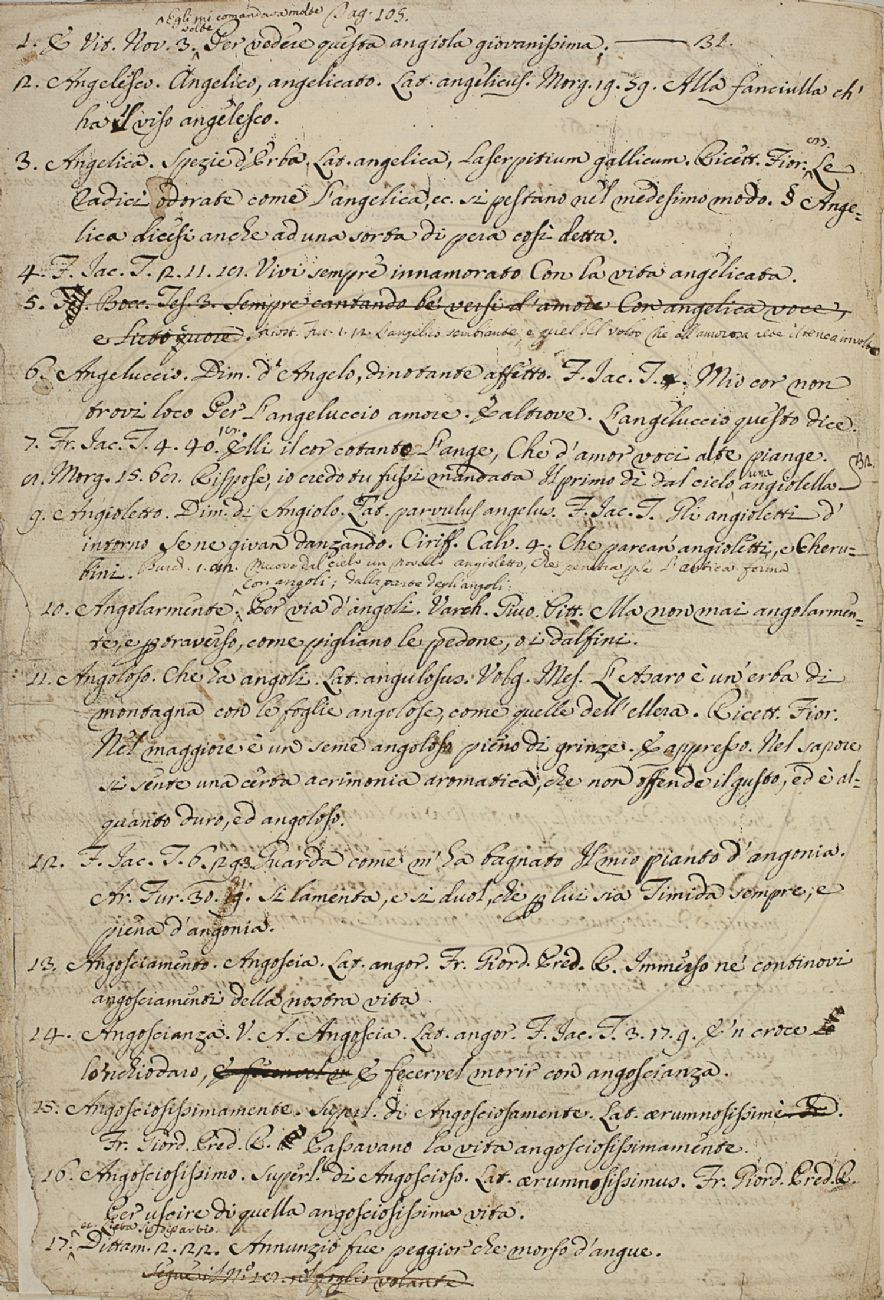 Egli mi comandava molte Pag. 105.
volte
1. E Vit. Nov. 3. Per vedere questa angiola giovanissima. — 31.
2. Angelesco. Angelico, angelicato. Lat. angelicus. Morg. 19. 59. Alla fanciulla ch'
ha il viso angelesco.
3. Angelica. Spezie d'Erba. Lat. angelica, laserpitium gallicum. Ricett. Fior. Le
radici odorate come l'angelica, ec. si pestano nel medesimo modo. § Ange-
lica dicesi anche ad una sorta di pera così detta.
4. F. Jac. T. 2. 11. Vivi sempre innamorato Con la vita angelicata.
5. Bocc. Tes. 3. Sempre cantando be' versi d'amore Con angelica voce,
e lieto quore. Ariost. Fur. 1. 12. L'angelico sembiante, e quel bel volto Che all'amorosa rete il tenea involto
6. Angeluccio. Dim. d'Angelo, dinotante affetto. F. Jac. T. Mio cor non
trovi loco Per l'angeluccio amore. E altrove. L'angeluccio questo dice.
7. Fr. Jac. T. 4. 40. Elli il cor cotanto l'ange, Che d'amor voci alte piange.
8. Morg. 15. Rispose, io credo tu fussi mandata Il primo dì dal cielo una angiolella.
9. Angioletto. Dim. di Angiolo. Lat. parvulus angelus. F. Jac. T. Gli angioletti d'
intorno Se ne givan danzando. Ciriff. Calv. 4. Che parean angioletti, e Cheru-
bini. Nuovo dal cielo un novello angioletto, che
con angoli; dalla parte degli angoli.
10. Angolarmente. Per via d'angoli. Varch. Giuo. Pitt. Ma non mai angolarmen-
te, e p traverso, come pigliano le pedone, o i dalfini.
11. Angoloso. Che ha angoli. Lat. angulosus. Volg. Mes. L'Assaro è un'erba di
montagna con le foglie angolose, come quelle dell'ellera. Ricett. Fior.
Nel maggiore è un seme angoloso pieno di grinze. E appresso. Nel sapore
si sente una certa acrimonia aromatica, che non offende il gusto, ed è al-
quanto duro, ed angoloso.
12. F. Jac. T. 6. Guarda come m'ha bagnato Il mio pianto d'angonia.
Ar. Fur. 30. Si lamenta, e si duol, che p lui sia Timida sempre, e
piena d'angonia.
13. Angosciamento. Angoscia. Lat. angor. Fr. Giord. Pred. R. Immerso ne' continovi
angosciamenti della nostra vita.
14. Angoscianza. V. A. Angoscia. Lat. angor. F. Jac. T. 3. 17. 9. E 'n croce
lo 'nchiodaro, E fecervel morir con angoscianza.
15. Angosciosissimamente. Superl. di Angosciosamente. Lat. ærumnosissimè.
Fr. Giord. Pred. R. Passavano la vita angosciosissimamente.
16. Angosciosissimo. Superl. di Angoscioso. Lat. ærumnosissimus. Fr. Giord. Pred. R.
Per uscire di quella angosciosissima vita.
17. Dittam. 2. 22. Annunzio fue peggior che morso d'angue.
Segue il Nº 18. nel foglio volante